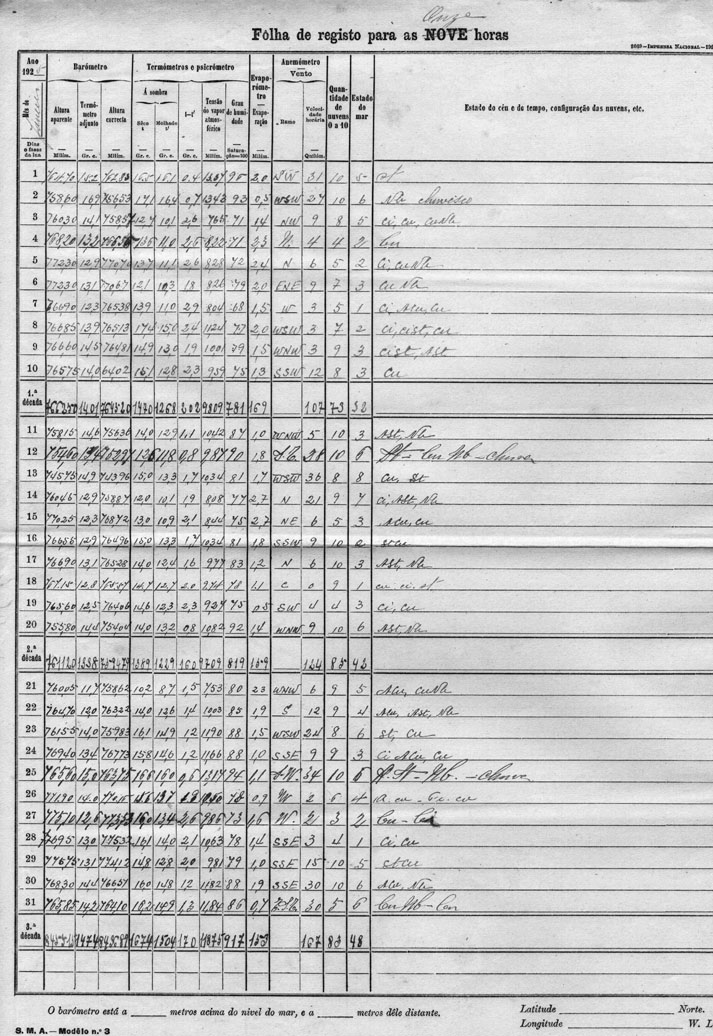 Onze
Fôlha de registo para as NOVE horas
2069—IMPRENSA NACIONAL—192
Ano 192
Mês de Janeiro
Dias e fases da lua
Barómetro
Altura aparente Milím.
Termómetro adjunto Gr. c.
Altura correcta Milím.
Termómetros e psicrómetro
Á sombra
Sêco t Gr. c.
Molhado t' Gr. c.
t—t' Gr. c.
Tensão do vapor atmosférico Milím.
Grau de humidade Saturação=100
Evaporómetro — Evaporação Milím.
Anemómetro — Vento
Rumo
Velocidade horária Quilóm.
Quantidade de nuvens 0 a 10
Estado do mar
Estado do céu e do tempo, configuração das nuvens, etc.
1 15,2 16,1 0,4 2,0 SW 31 10 5 st
2 75860 16,9 75653 17,1 16,4 0,7 1343 93 0,3 WSW 27 10 6 Nb chuvisco
3 76030 14,1 75857 12,7 10,1 2,6 765 71 1,4 NW 9 8 5 ci, cu, cuNb
4 76820 13,2 13,6 11,0 2,6 822 71 2,3 N. 4 4 2 Cu
5 77230 12,9 77070 13,7 11,1 2,6 828 72 2,4 N 6 5 2 Ci, cuNb
6 77230 13,1 77067 12,1 10,3 1,8 826 79 2,0 ENE 9 7 3 cuNb
7 76690 12,3 76538 13,9 11,0 2,9 804 68 1,5 W 3 5 1 Ci, Acu, cu
8 76685 13,9 76513 17,4 15,0 2,4 1124 77 2,0 WSW 3 7 2 Ci, cist, cu
9 76660 14,5 76481 14,9 13,0 1,9 1001 79 1,5 WNW 3 9 3 cist, Ast
10 76575 14,0 6402 15,1 12,8 2,3 959 75 1,3 SSW 12 8 3 cu
1.ª década 1401 1470 1268 202 9809 781 169 107 73 32
11 75815 14,6 75636 14,0 12,9 1,1 1042 87 1,0 WNW 5 10 3 Ast, Nb
12 12,6 11,8 0,8 987 90 1,8 28 10 6 St – Cu Nb – chuva
13 74575 14,9 74396 15,0 13,3 1,7 1034 81 1,7 WSW 36 8 8 cu, st
14 76046 12,9 75887 12,0 10,1 1,9 808 77 2,7 N 21 9 7 Ci, Ast, Nb
15 77025 12,3 76872 13,0 10,9 2,1 844 75 2,7 NE 6 5 3 Acu, cu
16 76656 12,9 76496 15,0 13,3 1,7 1034 81 1,8 SSW 9 10 2 stcu
17 76690 13,1 76528 14,0 12,4 1,6 977 83 1,2 N 6 10 3 Ast, Nb
18 12,8 14,7 12,7 2,0 78 1,1 C 0 9 1 cu. ci. st
19 76560 12,5 76406 14,6 12,3 2,3 927 75 0,5 SW 4 4 3 Ci, cu
20 75580 14,4 75404 14,0 13,2 0,8 1082 92 1,4 WNW 9 10 6 Ast, Nb
2.ª década 761120 1338 759479 1389 1229 160 9709 819 159 124 85 42
21 76005 11,7 75862 10,2 8,7 1,5 753 80 2,3 WNW 6 9 5 Acu, cuNb
22 76470 12,0 76322 14,0 12,6 1,4 1003 85 1,9 S 12 9 4 Acu, Ast, Nb
23 76155 14,0 75983 16,1 14,9 1,2 1190 88 1,5 WSW 24 8 6 st, cu
24 76940 13,4 76773 15,8 14,6 1,2 1166 88 1,0 SSE 9 9 3 Ci Acu, cu
25 76560 15,0 76375 16,6 16,0 0,6 1317 94 1,1 34 10 6 St – Nb. – chuva
26 14,0 78 0,9 W 2 6 4
27 12,6 16,0 13,4 2,6 986 73 1,6 W. 2 3 2 Cu – Ci
28 77695 13,0 77532 16,1 14,0 2,1 1063 78 1,4 SSE 3 4 1 Ci, cu
29 77675 13,1 77412 14,8 12,8 2,0 981 79 1,0 SSE 15 10 5 stcu
30 76830 14,4 76651 16,0 14,8 1,2 1182 88 1,9 SSE 30 10 6 Acu, Nb
31 76585 14,2 76410 16,2 14,9 1,3 1184 86 0,7 30 5 6 Cu Nb – Cu
3.ª década 1474 1674 1504 170 11875 917 153 167 83 48
O barómetro está a ______ metros acima do nível do mar, e a ______ metros dêle distante.
Latitude ______ Norte.
Longitude ______ W. L
S. M. A. — Modêlo n.º 3